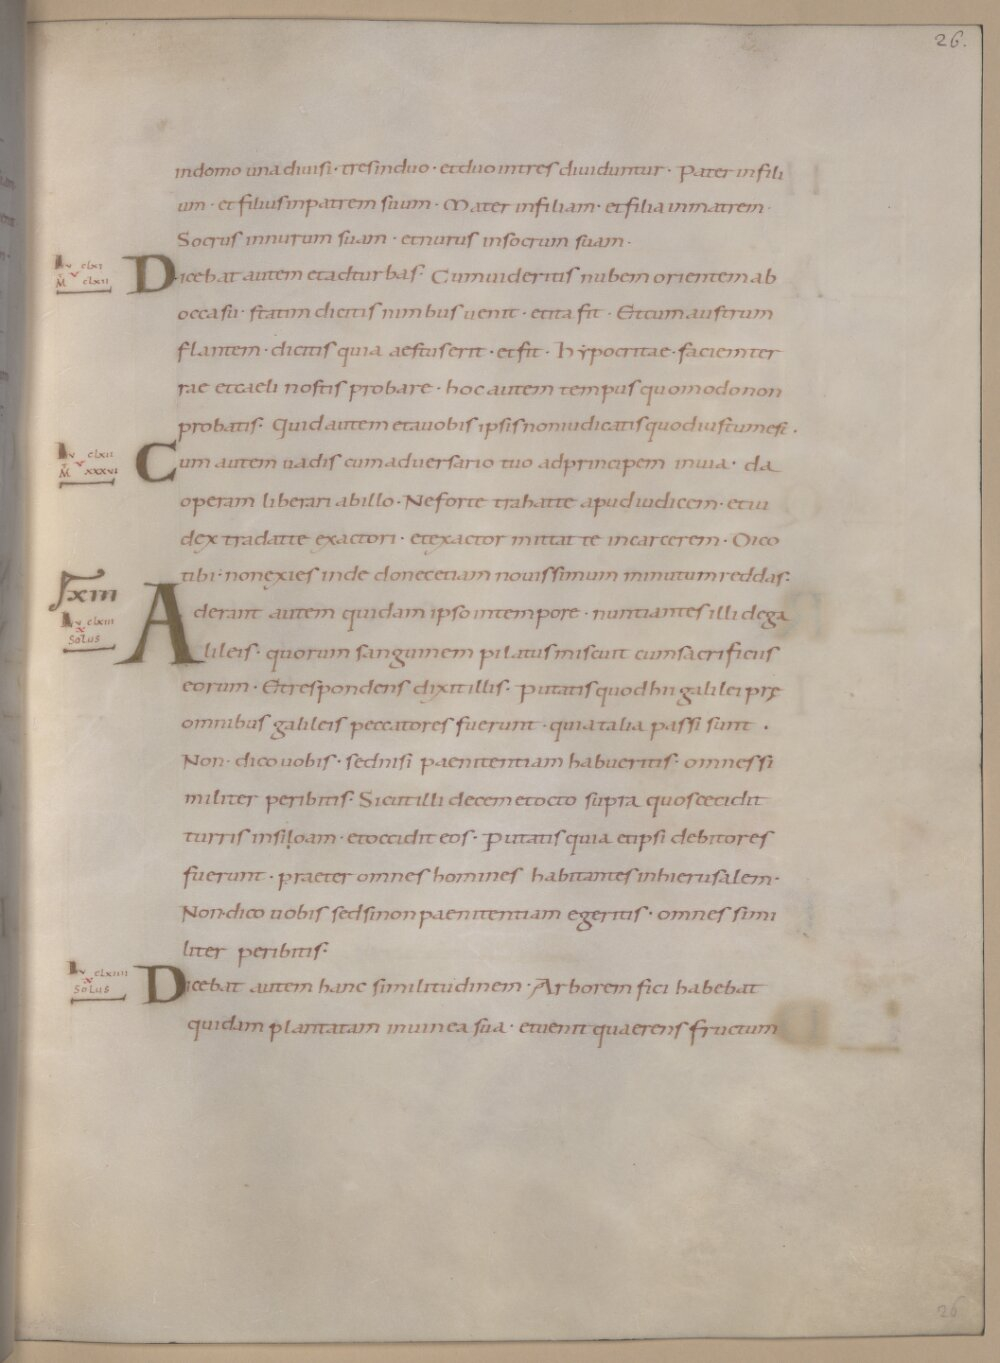 26.
indomo una diuisi · tresinduo · etduo intres diuiduntur · Pater infili
um · etfiliusinpatrem suum · Mater infiliam · etfilia inmatrem ·
Socrus innurum suam · etnurus insocrum suam ·
Lv clxi
M clxii
Dicebat autem etadturbas · Cumuideritis nubem orientem ab
occasu · statim dicitis nimbus uenit · etita fit · Etcum austrum
flantem · dicitis quia aestuserit · etfit · Hypocritae · faciem ter
rae etcaeli nostis probare · hoc autem tempus quomodo non
probatis · Quid autem etauobis ipsis noniudicatis quodiustumest ·
Lv clxii
M xxxvi
Cum autem uadis cum aduersario tuo adprincipem inuia · da
operam liberari abillo · Neforte trahatte apud iudicem · etiu
dex tradatte exactori · etexactor mittat te incarcerem · Dico
tibi · nonexies inde donecetiam nouissimum minutum reddas ·
xiii
Lv clxiii
x
Solus
Aderant autem quidam ipso intempore · nuntiantes illi dega
lileis · quorum sanguinem pilatus miscuit cumsacrificiis
eorum · Etrespondens dixit illis · Putatis quod hii galilei prę
omnibus galileis peccatores fuerunt · quia talia passi sunt ·
Non · dico uobis · sednisi paenitentiam habueritis · omnes si
militer peribitis · Sicut illi decem et octo supra quos cecidit
turris insiloam · etoccidit eos · Putatis quia etipsi debitores
fuerunt · praeter omnes homines habitantes inhierusalem ·
Non · dico uobis sedsinon paenitentiam egeritis · omnes simi
liter peribitis ·
Lv clxiiii
x
Solus
Dicebat autem hanc similitudinem · Arborem fici habebat
quidam plantatam inuinea sua · etuenit quaerens fructum
26